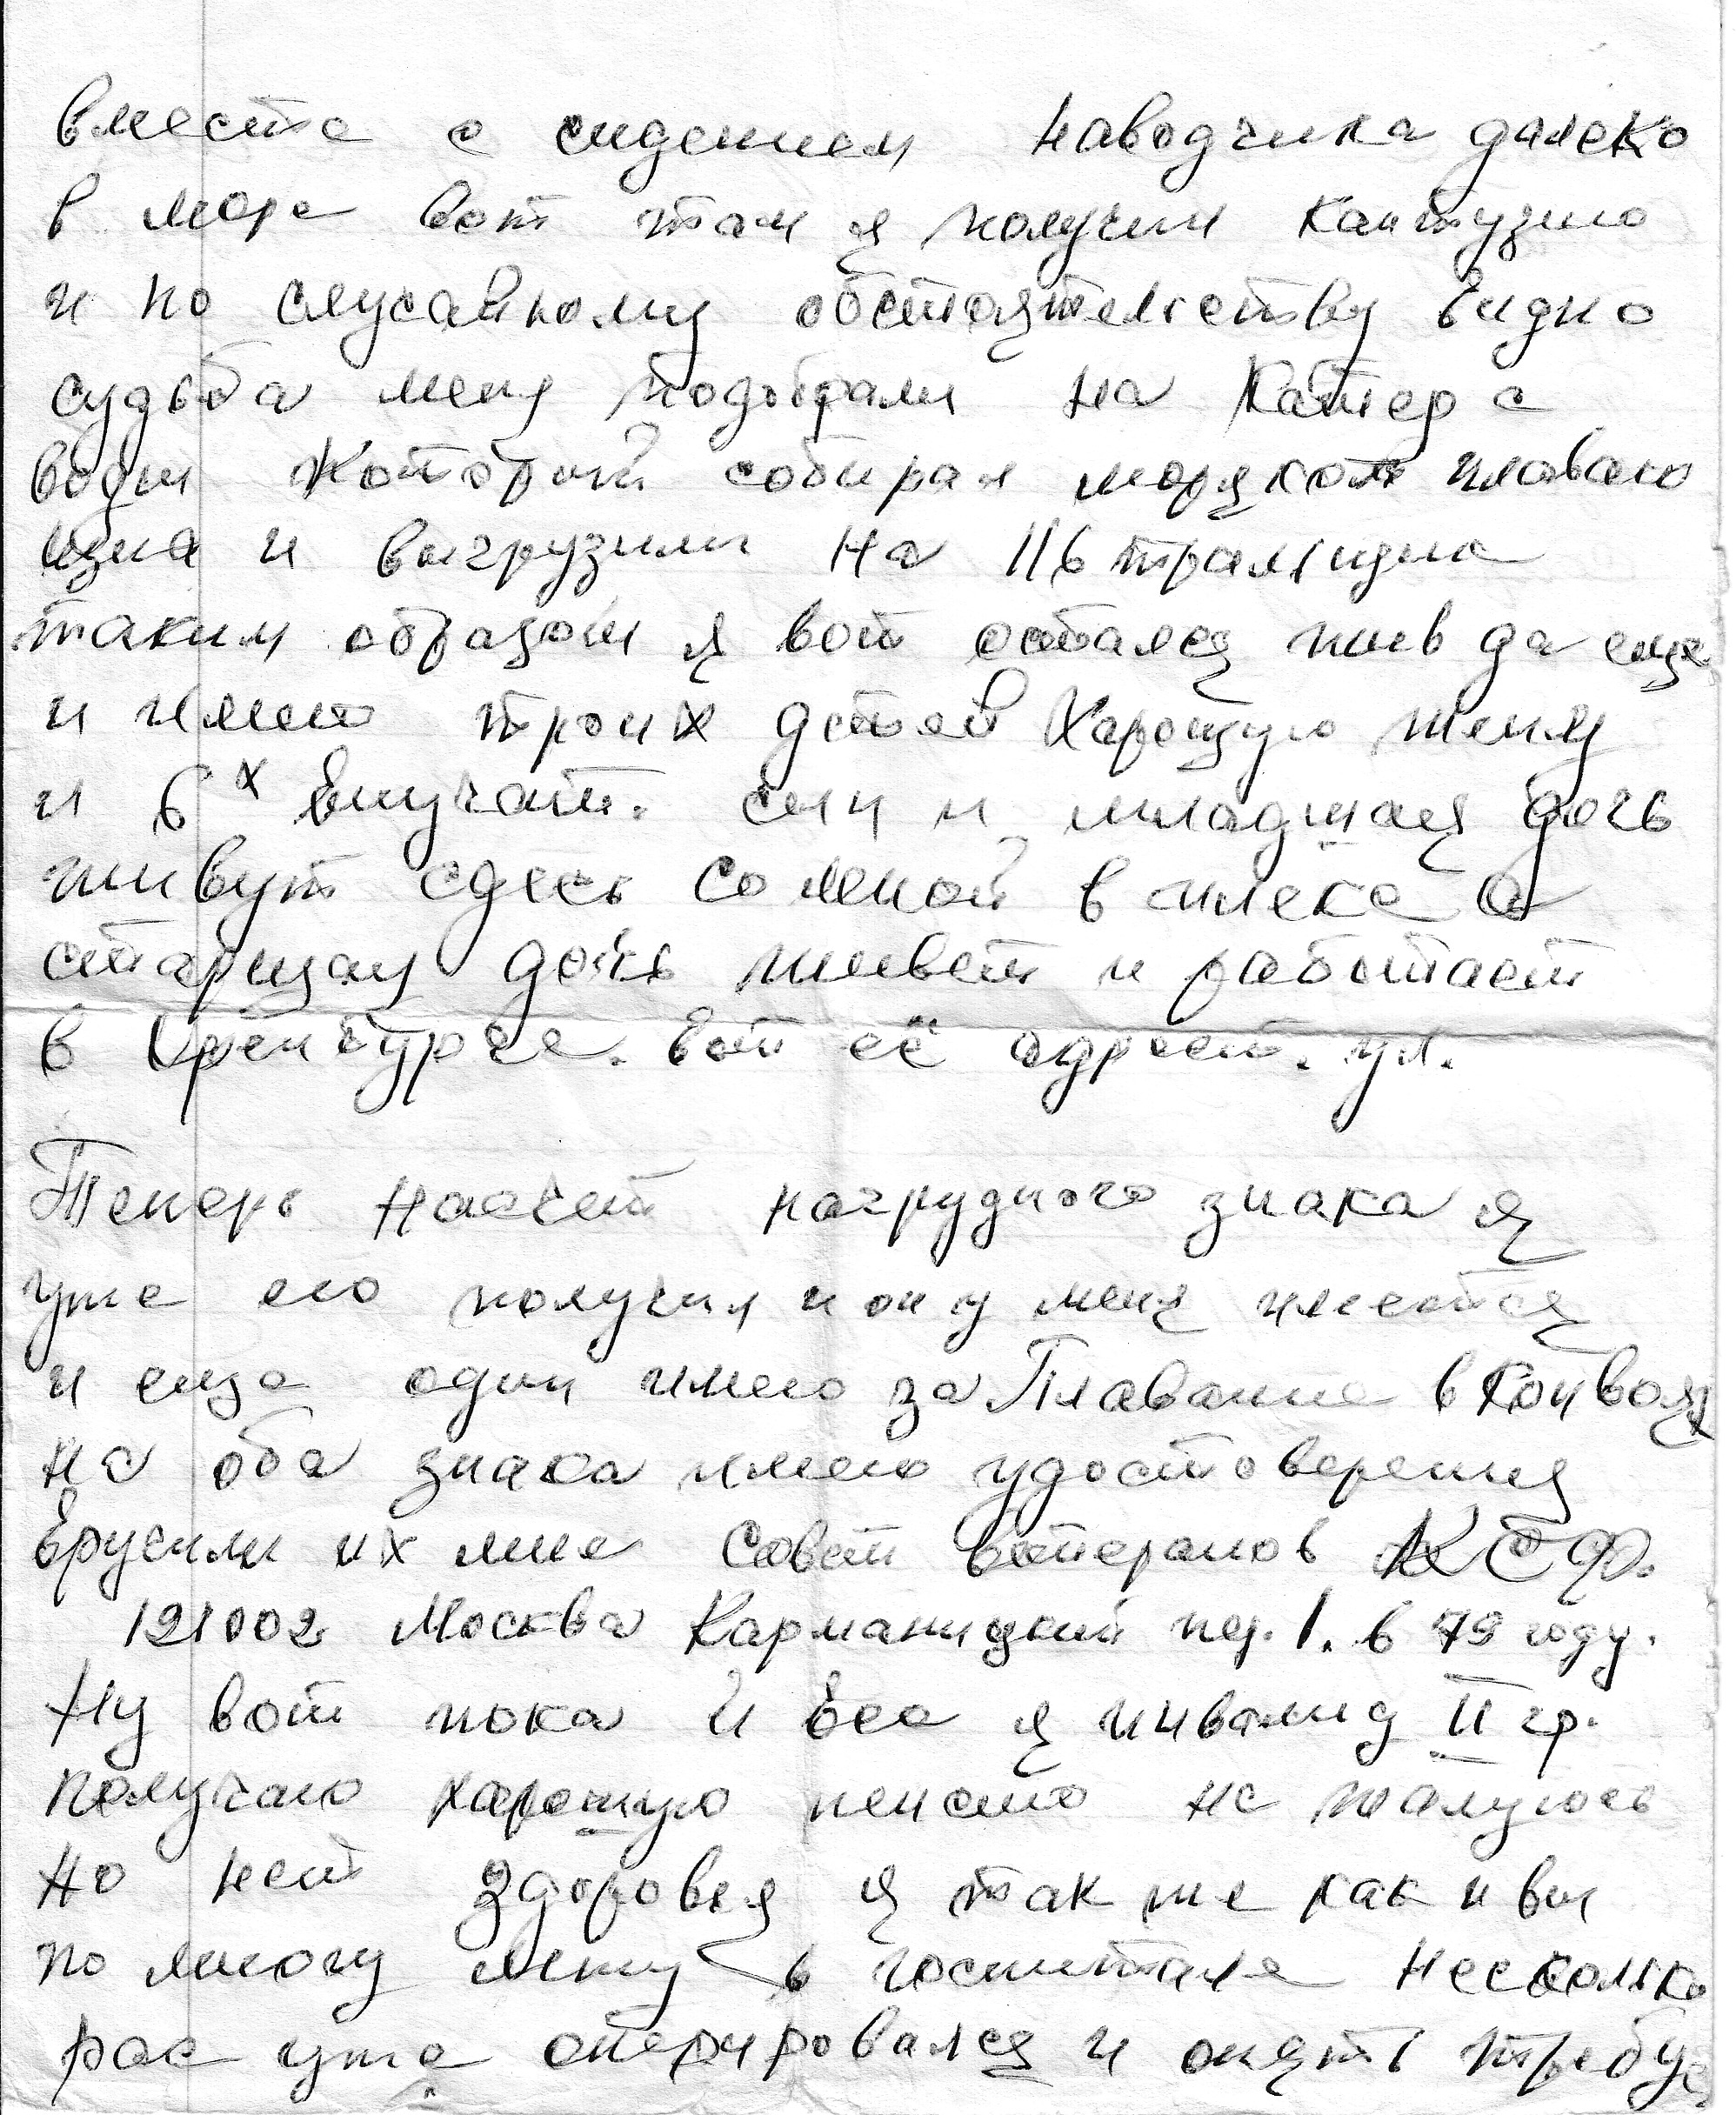 вместе с сидением наводчика далеко
в море вот там я получил кантузию
и по слусайному обстоятельству видно
судьба меня подобрали на Катер с
воды который собирал моряков плаваю
щих и выгрузили на 116 тральщик
таким образом я вот остался жив да еще
и имею троих детей Харошую жену
и 6х внучат. сын и младшая дочь
живут сдесь со мной в а
старшая дочь живет и работает
в Оренбурге. Вот её адрест. ул.
Теперь насчет нагрудного знака я
уже его получил и он у меня имеется
и еще один имею за Плавание в Конвоях
на оба знака имею удостоверения
Вручили их мне Совет ветеранов КСФ.
121002 Москва Карманицкий пер. 1. в 79 году.
Ну вот пока и все я инвалид II гр.
Получаю харошую пенсию не жалуюсь
но нет здоровья я так же как и вы
по многу лежу в госпитале несколько
рас уже оперировался и опять требуе